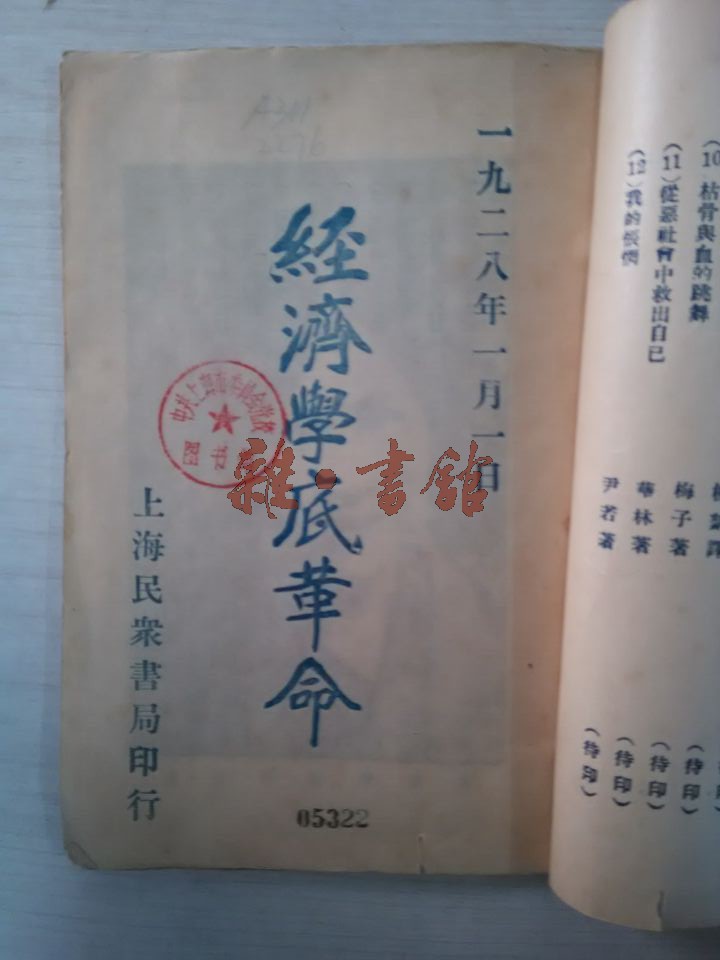 一九二八年一月一日
經濟學底革命
上海民衆書局印行
05322
雜·書館
(10) 枯骨與血的跳舞
(11) 從惡社會中救出自已
梅子著
(12) 我的悵惘
華林著
尹若著
(待印)
(待印)
(待印)
(待印)